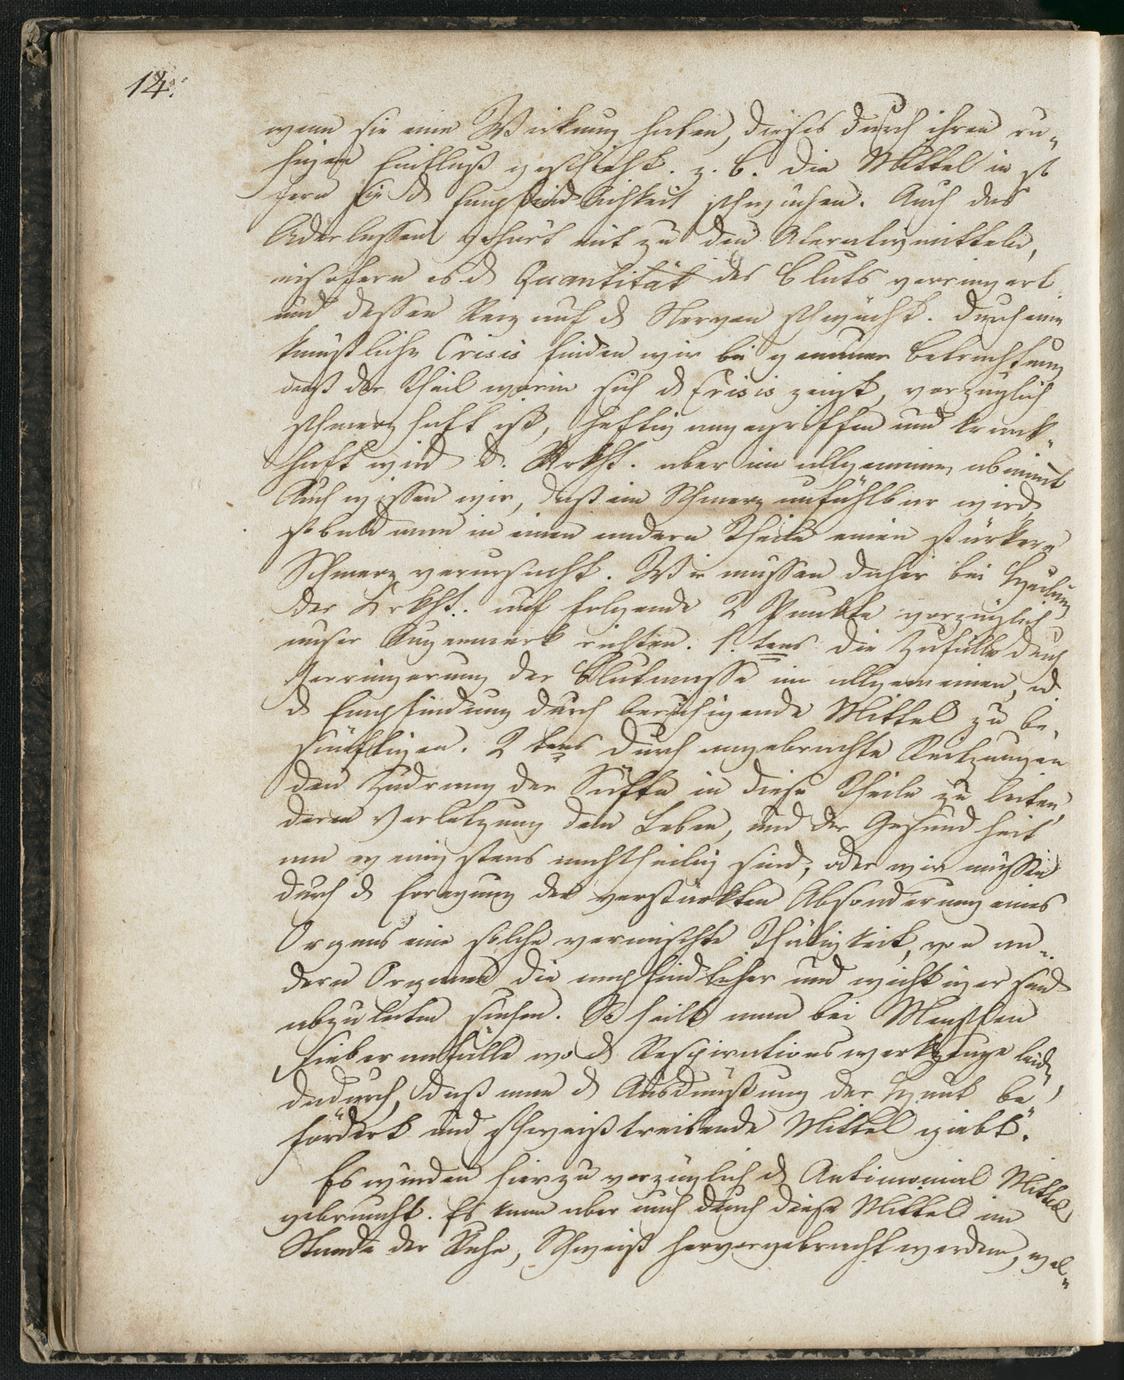 14.
wenn sie eine Wirkung haben, dieses durch ihren ru„
higen Einfluß geschieht. z. b. die Mittel in so
fern sie d Empfindlichkeit schwächen. Auch das
Aderlassen gehört mit zu den
insofern es d Quantität des Bluts verringert
und dessen Reiz auf d Nerven schwächt. Durch eine
künstliche Crisis finden wir bei genauer Betrachtung
daß der Theil worin sich d Crisis zeigt, vorzüglich
schmerzhaft ist, heftig angegriffen und krank„
haft wird d. Krkht. aber im allgemeinen abnimmt
Auch wissen wir, daß ein Schmerz unfühlbar wird
sobald man in einen andern Theile einen stärkern
Schmerz verursacht. Wir müssen daher bei Heilung
der Krkht. auf folgende 2 Punkte vorzüglich
unser Augenmerk richten. 1. tens die Zufälle durch
Verringerung der Blutmasse im allgemeinen, u
d Empfindung durch beruhigende Mittel zu be„
sänftigen. 2 tens durch angebrachte Reitzungen
den Zudrang der Säfte in diese Theile zu leiten,
deren Verletzung dem Leben, und der Gesundheit
am wenigstens nachtheilig sind, oder wir müssen
durch d Erregung der verstärkten Absonderung eines
Organs eine solche vermischte Thätigkeit, von an„
dern Organen die empfindlicher und wichtiger sind
abzuleiten suchen. So heilt man bei Menschen
Fieberanfälle wo d Respirationswerkzeuge leiden,
dadurch, daß man d Ausdünstung der Haut be„
fördert und schweißtreibende Mittel giebt.
Es wurden hierzu vorzüglich d Antimonial Mittel
gebraucht. Es kann aber auch durch diese Mittel im
Stande der Ruhe, Schweiß hervorgebracht werden, wel„